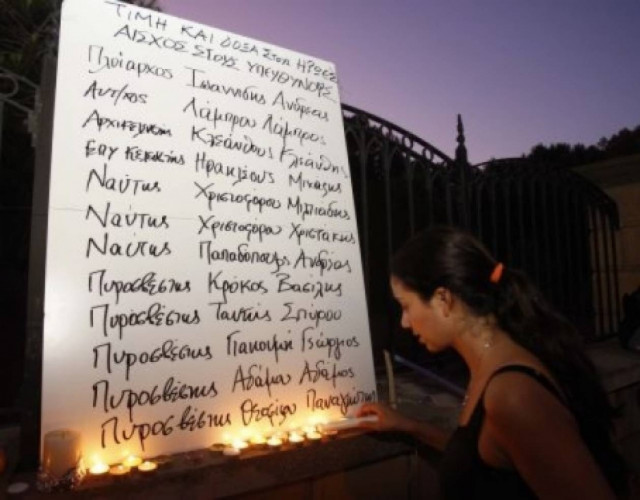 ΤΙΜΗ ΚΑΙ ΔΟΞΑ ΣΤΟΥΣ ΗΡΩΕΣ
ΑΙΣΧΟΣ ΣΤΟΥΣ ΥΠΕΥΘΥΝΟΥΣ
Πλοίαρχος Ιωαννίδης Ανδρέας
Αντ/χος Λάμπρου Λάμπρος
Κλεάνθους Κλεάνθης
Ηρακλέους Μιχάλης
Ναύτης Χριστοφόρου Μιλτιάδης
Ναύτης Χριστοφόρου Χριστάκης
Ναύτης Παπαδόπουλος Ανδρέας
Πυροσβέστης Κρόκος Βασίλης
Πυροσβέστης Ταντής Σπύρου
Πυροσβέστης Γιακουμή Γεώργιος
Πυροσβέστης Αδάμου Αδάμος
Πυροσβέστης Θεοφίλου Παναγιώτης